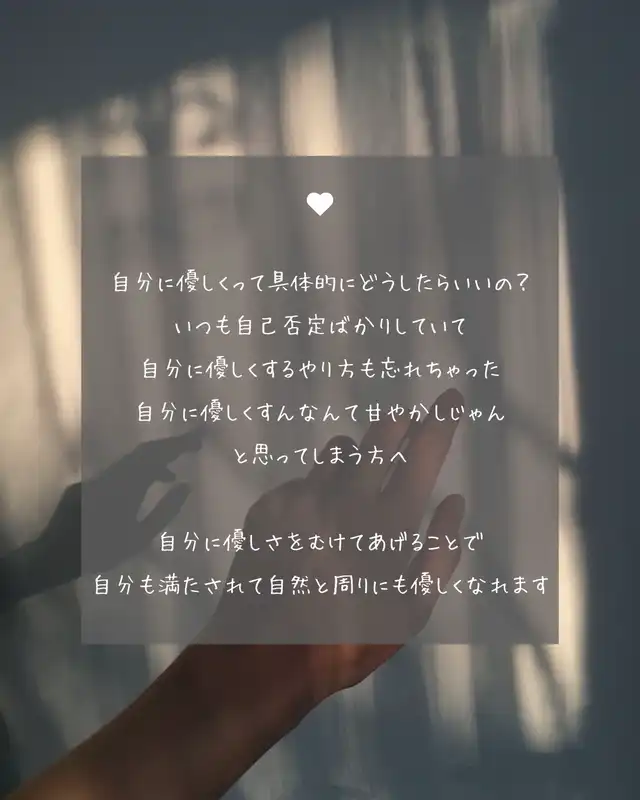 自分に優しくって具体的にどうしたらいいの？
いつも自己否定ばかりしていて
自分に優しくするやり方も忘れちゃった
自分に優しくすんなんて甘やかしじゃん
と思ってしまう方へ
自分に優しさをむけてあげることで
自分も満たされて自然と周りにも優しくなれます